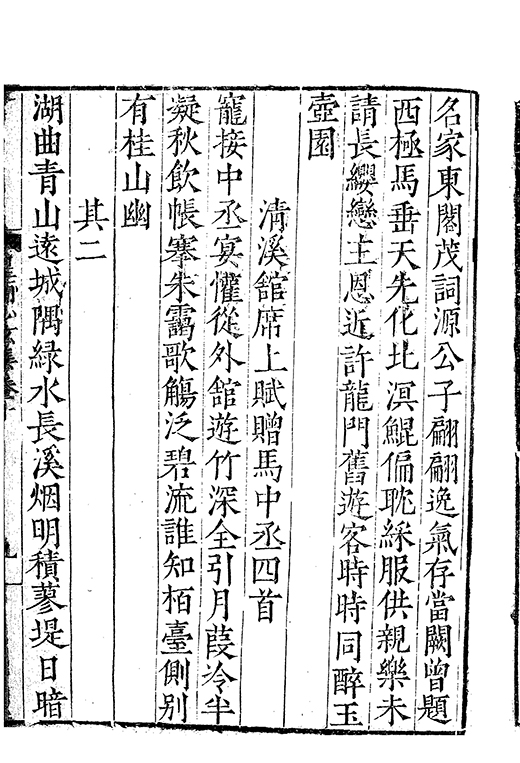 名家東閣茂詞源公子翩翩逸氣存當闕曾題
西極馬垂天先化北溟鯤偏耽綵服供親樂未
請長纓戀主恩近許龍門舊遊客時時同醉玉
壺園
清溪館席上賦贈馬中丞四首
寵接中丞宴懽從外館遊竹深全引月葭冷半
凝秋飲帳搴朱靄歌觴泛碧流誰知栢臺側別
有桂山幽
其二
湖曲青山遠城隅緑水長溪烟明積蓼堤日暗